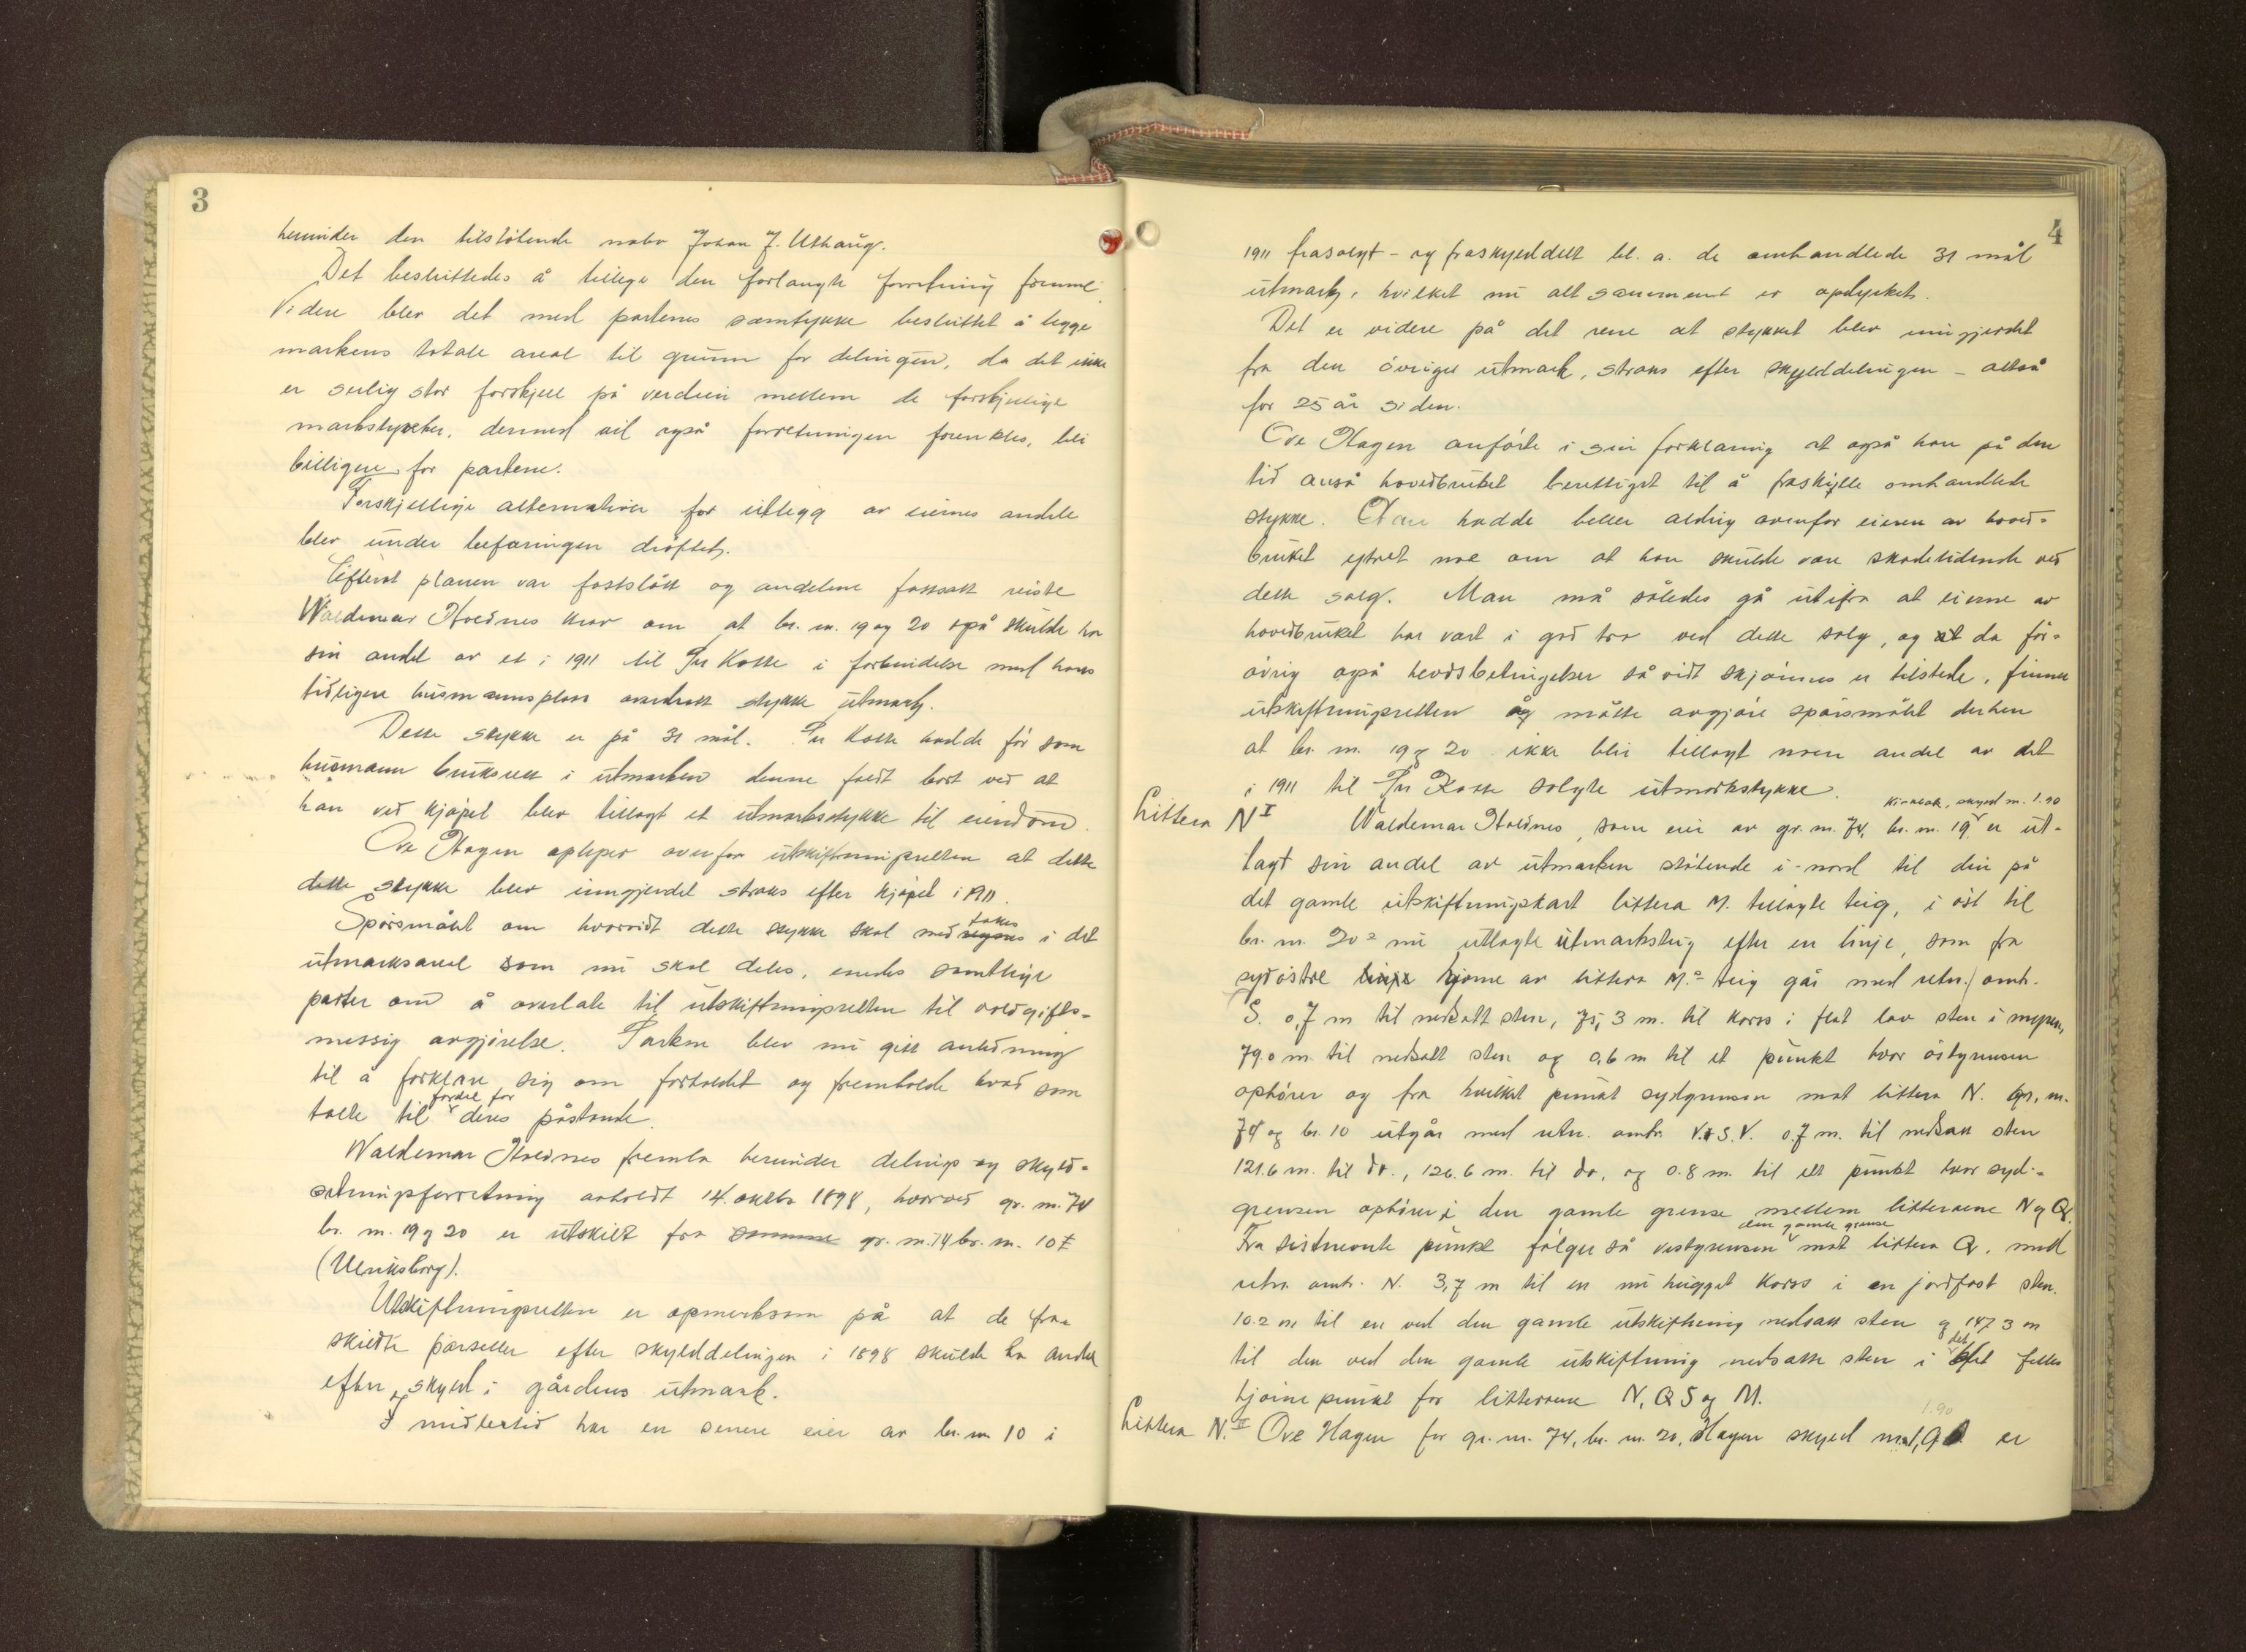 3
herunder den tilstötende nabo Johan J. Uthaug.
Det besluttedes å tillege den forlangte forretning fremme.
Videre blev det med partenes samtykke besluttet å legge
markens totale areal til grunn for delingen, da det ikke
er serlig stor forskjell på verdien mellem de forskjellige
markstykker, dermed vil også forretningen forenkles, bli
billigere for partene.
Forskjellige alternativer for utlegg av eiernes andele
blev under befaringen dröftet.
Efterat planen var fastslått og andelene fastsatt reiste
Waldemar Holdnes krav om at br. nr. 19 og 20 også skulde ha
sin andel av et i 1911 til Per Kotte i forbindelse med hans
tidligere husmannsplass overdratt stykke utmark.
Dette stykke er på 31 mål. Per Kotte hadde för som
husmann bruksrett i utmarken denne faldt bort ved at
han ved kjöpet blev tillagt et utmarksstykke til eiendom.
Ove Hagen oplyser overfor utskiftningsretten at dette
dette stykke blev inngjerdet straks efter kjöpet i 1911.
Spörsmålet om hvorvidt dette stykke skal medregnes takes i det
utmarksareal som nu skal deles, enedes samtlige
parter om å overlate til utskiftningsretten til voldgifts-
messig avgjörelse. Partene blev nu gitt anledning
til å forklare sig om forholdet og fremholde hvad som
talte til fordel for deres påstande.
Waldemar Holdnes fremla herunder delings og skyld-
setningsforretning avholdt 14. oktbr 1898, hvorved gr. nr. 74
br. nr. 19 og 20 er utskilt fra samme gr. nr. 74 br. nr. 10
(Ulriksborg).
Utskiftningsretten er opmerksom på at de fra-
skilte parseller efter skylddelingen i 1898 skulde ha andel
efter skyld i gårdens utmark.
I midlertid har en senere eier av br. nr. 10 i
4
1911 frasolgt - og fraskylddelt bl. a. de omhandlede 31 mål
utmark, hvilket nu alt sammen er opdyrket.
Det er videre på det rene at stykket blev inngjerdet
fra den övrige utmark, straks efter skylddelingen - altså
for 25 år siden.
Ove Hagen anförte i sin forklaring at også han på den
tid anså hovedbruket berettiget til å fraskille omhandlede
stykke. Han hadde heller aldrig ovenfor eieren av hoved-
bruket ytret noe om at han skulde være skadelidende ved
dette salg. Man må således gå utifra at eierne av
hovedbruket har vært i god tro ved dette salg, og at da för-
övrig også hevdsbetingelser så vidt skjönnes er tilstede, finner
utskiftningsretten og måtte avgjöre spörsmålet derhen
at br. nr. 19 og 20 ikke blir tillagt noen andel av det
i 1911 til Per Kotte solgte utmarksstykke.
Littera N I Waldemar Holdnes, som eier av gr. nr. 74, br. nr. 19 skyld m. 1.90 er ut-
lagt sin andel av utmarken stötende i nord til den på
det gamle utskiftningskart littera M. tillagte teig, i öst til
br. nr. 20s nu utlagte utmarksteig efter en linje, som fra
sydöstre linje hjörne av littera M.s teig går med retn. omtr.
S. 0,7 m til nedsatt sten, 75,3 m. til kors i flat lav sten i myren,
79.0 m. til nedsatt sten og 0,6 m til et punkt hvor östgrensen
ophörer og fra hvilket punkt sydgrensen mot littera N. gr. nr.
74 og br. 10 utgår med retn. omtr. V.t.S.V. 0.7 m. til nedsatt sten
121.6 m. til do., 126.6 m. til do, og 0.8 m. til ett punkt hvor syd-
grensen ophörer i den gamle grense mellem litteraene N og Q.
Fra sistnevnte punkt fölger så vestgrensen den gamle grense mot littera Q. med
retn. omtr. N. 3,7 m til en nu hugget kors i en jordfast sten.
10.2 m til en ved den gamle utskiftning nedsatt sten og 147.3 m
til den ved den gamle utskiftning nedsatte sten i det felles
hjörnepunkt for litteraene N, Q S og M.
Littera N. II Ove Hagen for gr. nr. 74, br. nr. 20, Hagen skyld m 1,90 1.90 er